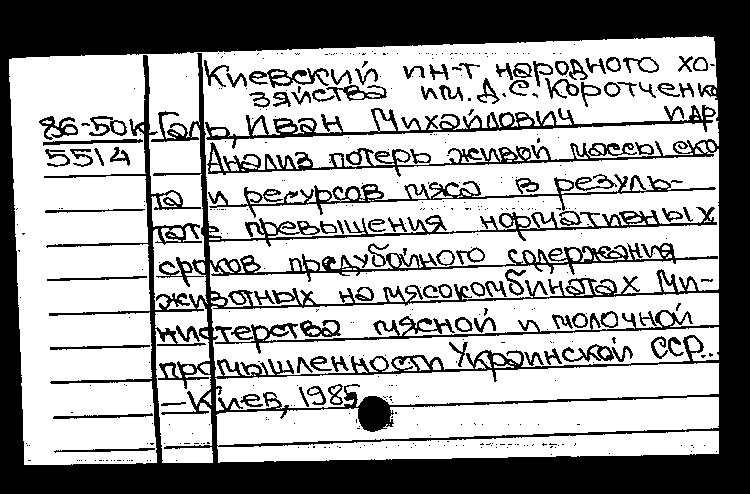 Киевский ин-т народного хо-
зяйства им. Д.С. Коротченко
86-50к Галь, Иван Михайлович и др.
5514 Анализ потерь живой массы ско-
та и ресурсов мяса в резуль-
тате превышения нормативных
сроков предубойного содержания
животных на мясокомбинатах Ми-
нистерства мясной и молочной
промышленности Украинской ССР...
—Киев, 1985